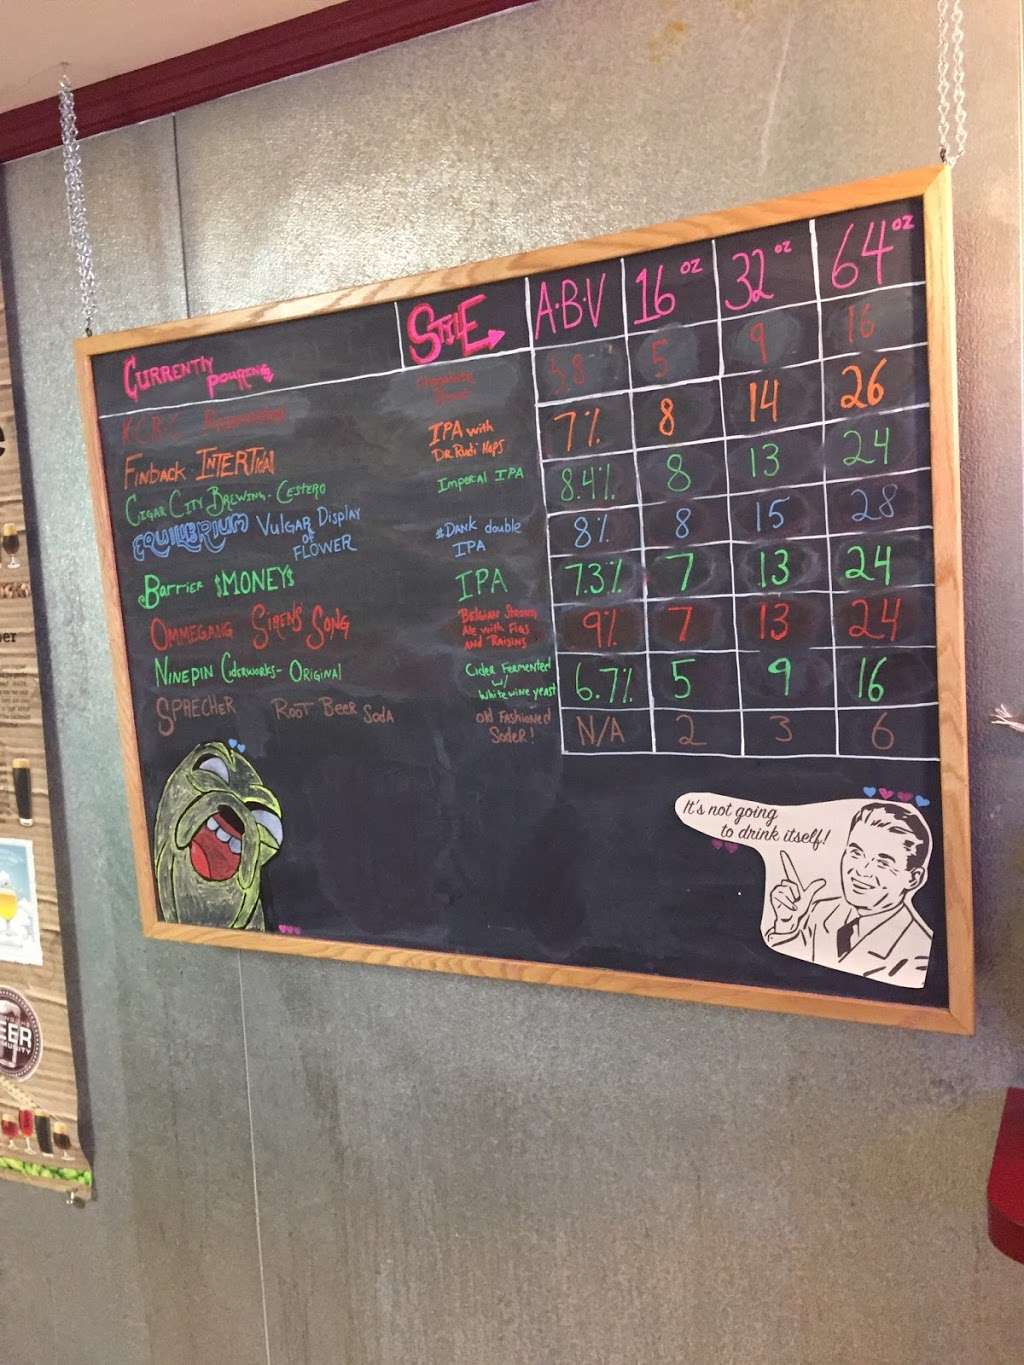 Currently Pouring
STYLE
A.B.V
16 oz
32 oz
64 oz
KCBC
5.8 5 9 16
Finback INTERTidal IPA with
Dr. Rudi Hops
7% 8 14 26
Cigar City Brewing - Cestero Imperial IPA 8.4% 8 13 24
EQUILIBRIUM Vulgar Display
of
FLOWER
#Dank double
IPA
8% 8 15 28
Barrier $MONEY$ IPA 7.3% 7 13 24
OMMEGANG SIREN'S SONG Belgian Strong
Ale with Figs
and Raisins
9% 7 13 24
NINEPIN CIDERWORKS - ORIGINAL Cider Fermented
w/
white wine yeast
6.7% 5 9 16
SPRECHER ROOT BEER SODA Old Fashioned
Soder!
N/A 2 3 6
It's not going
to drink itself!
EER